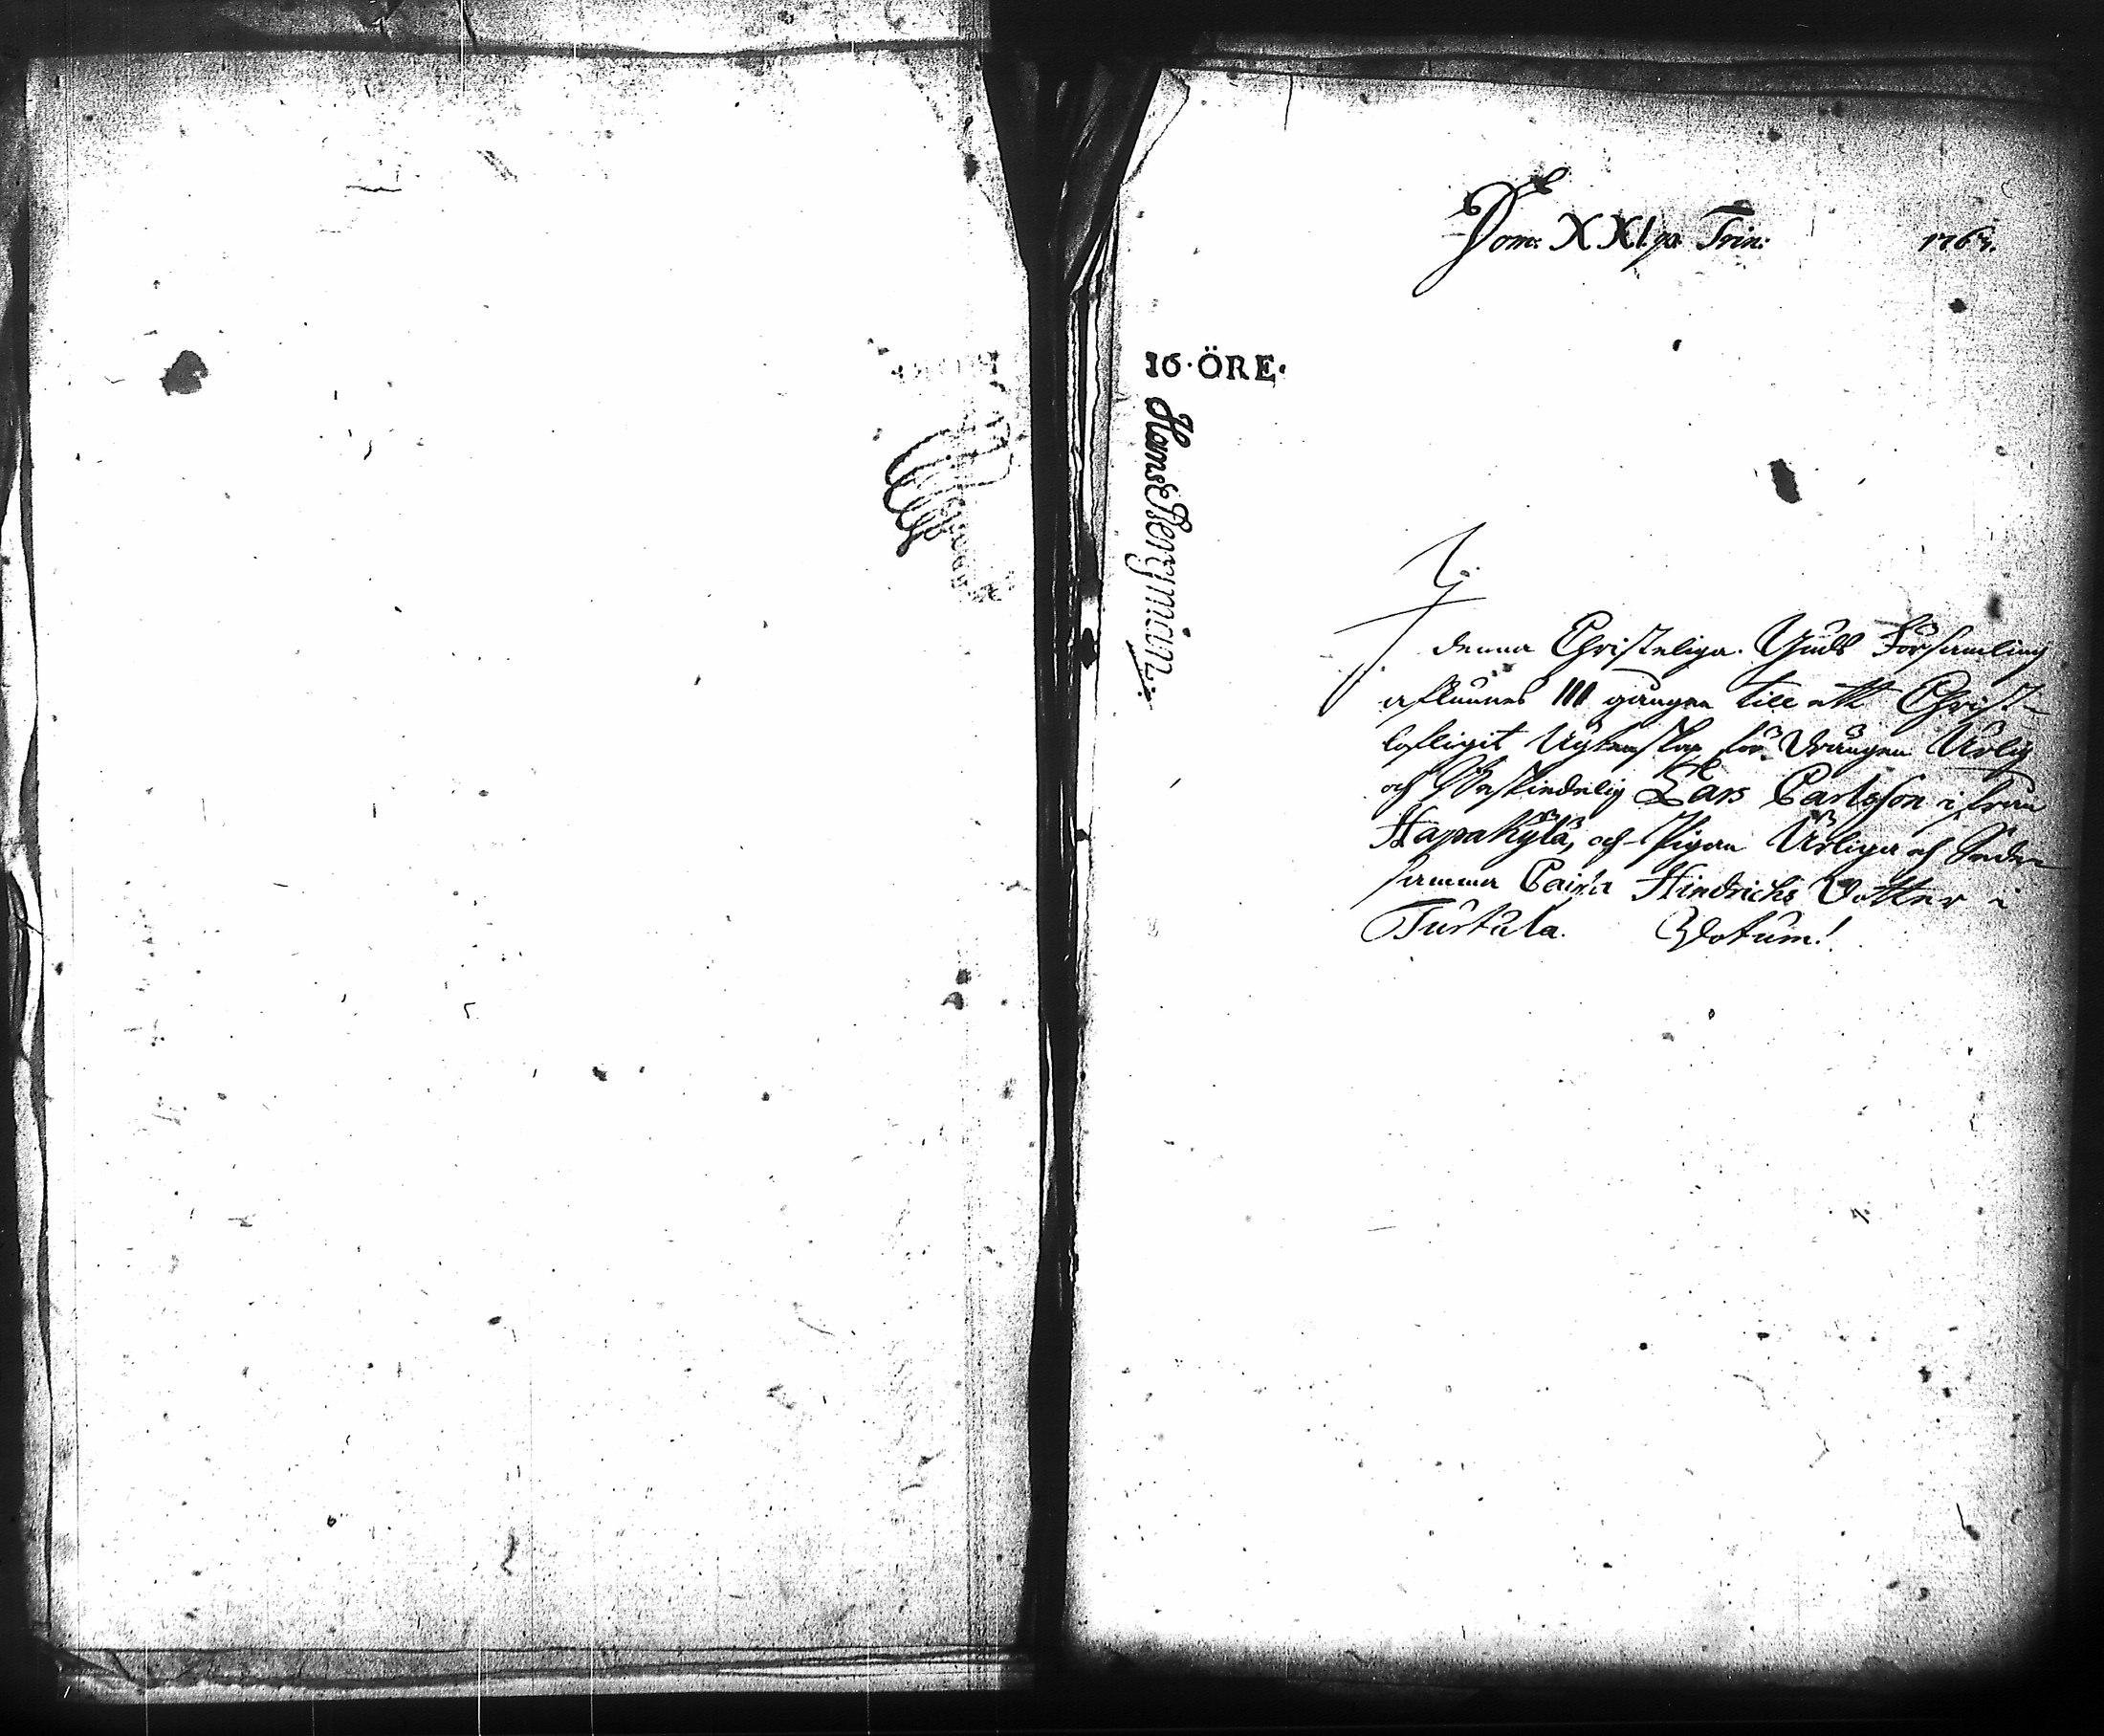 Dom: XXI. p. Trin: 1767.
16·ÖRE·
Hans Bergman
I
denna Christeliga Guds Församling
aflunnes III gången till ett Christ-
lofligit Ägtenskap för Drängen Ärlig
och Beskiedelig Lars Carlsson ifrån
Hapakylä, och Pigan Ärliga och Gudz
samma Caisa Hindrichs Dotter i
Turtula. Votum!